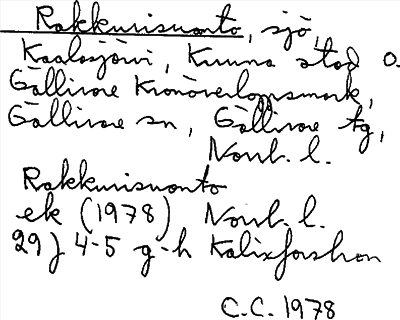 Rakkurisuanto, sjö,
Kaalasjärvi, Kiruna stad o.
Gällivare Kronöverloppsmark,
Gällivare sn, Gällivare tg,
Norrb. l.
Rakkurisuanto
ek (1978) Norrb. l.
29J 4-5 g-h Kalixforsbron
C.C. 1978